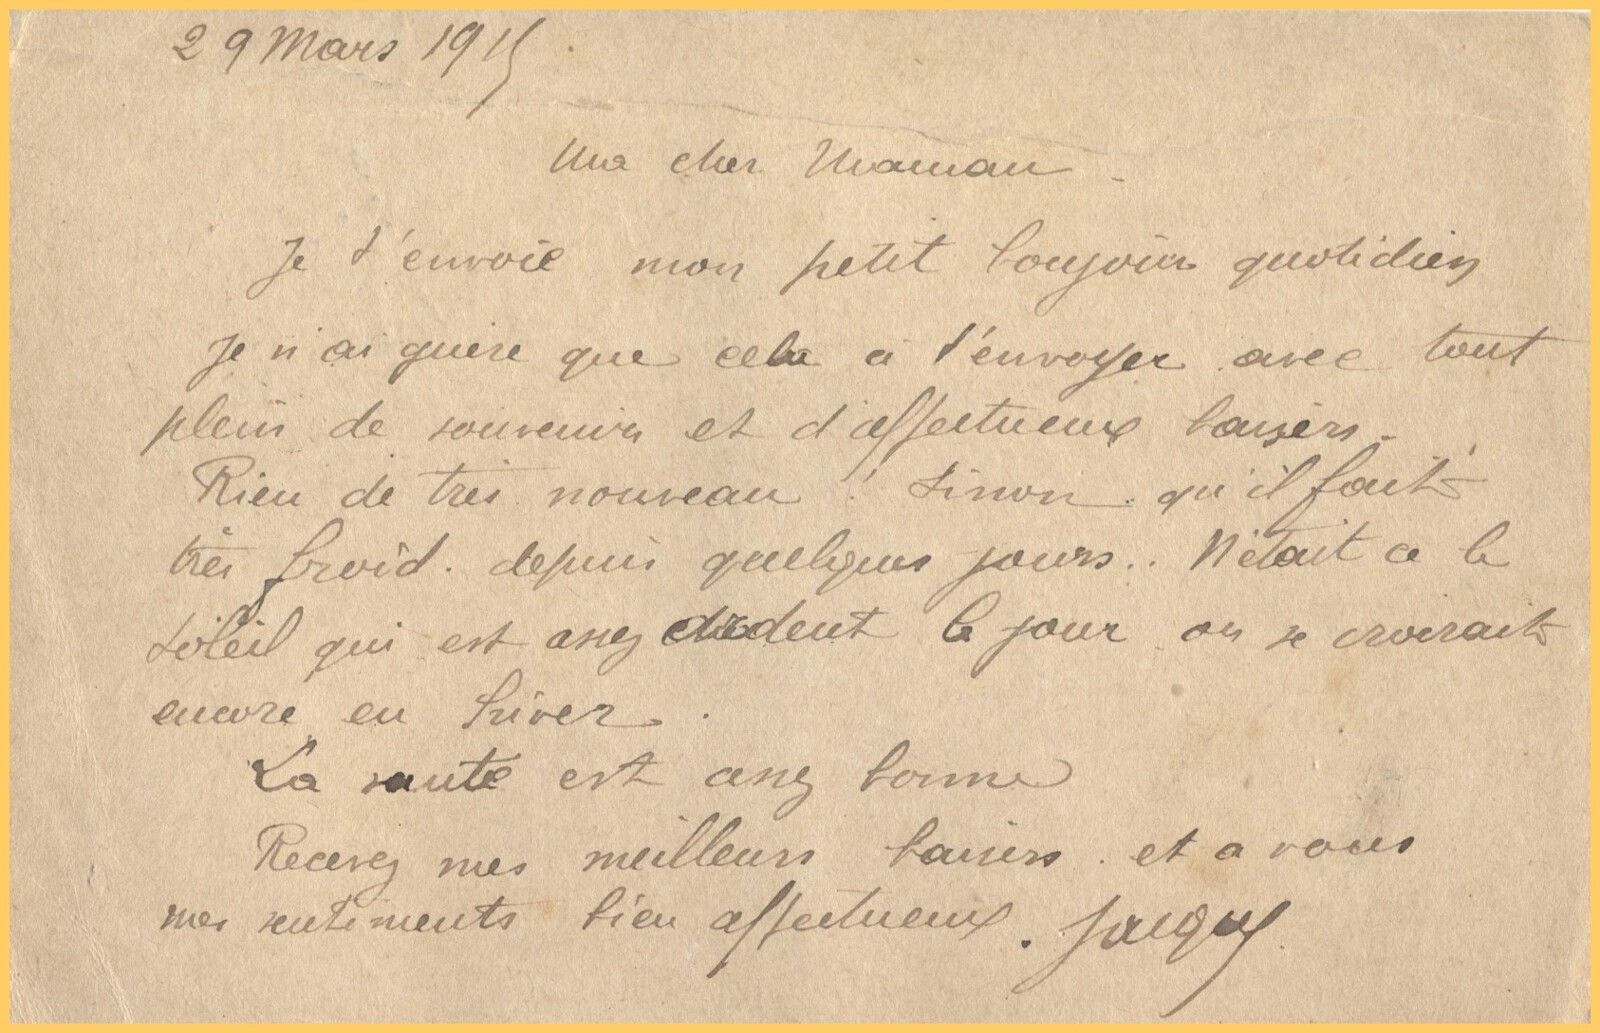 29 Mars 1915
Ma cher Maman
Je t'envoie mon petit bonjour quotidien
Je n'ai guère que cela à t'envoyer avec tout
plein de souvenirs et d'affectueux baisers.
Rien de très nouveau ! Sinon qu'il fait
très froid. depuis quelques jours.. N'était ce le
soleil qui est assez le jour on se croirait
encore en hiver.
La santé est assez bonne
Recevez mes meilleurs baisers. et a vous
mes sentiments bien affectueux. Jacques